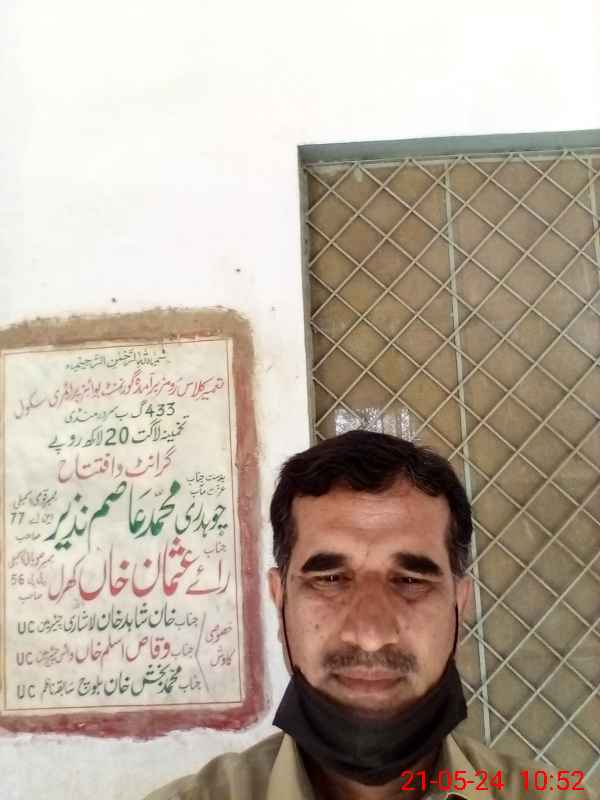 بسم اللہ الرحمٰن الرحیم
تعمیر کلاس رومز برآمدہ گورنمنٹ بوائز پرائمری سکول
433 گ ب مریدوالا
تخمینہ لاگت 20 لاکھ روپے
گرانٹ و افتتاح
بدست جناب عزت مآب
چوہدری محمد عاصم نذیر صاحب
ممبر قومی اسمبلی این اے 77
جناب رائے عثمان خاں کھرل صاحب
ممبر صوبائی اسمبلی پی پی 56
خصوصی کاوش
جناب خان شاہد خان لاشاری چیئرمین UC
جناب وقاص اسلم خاں وائس چیئرمین UC
جناب محمد بخش خان بلوچ سابقہ ناظم UC
21-05-24 10:52